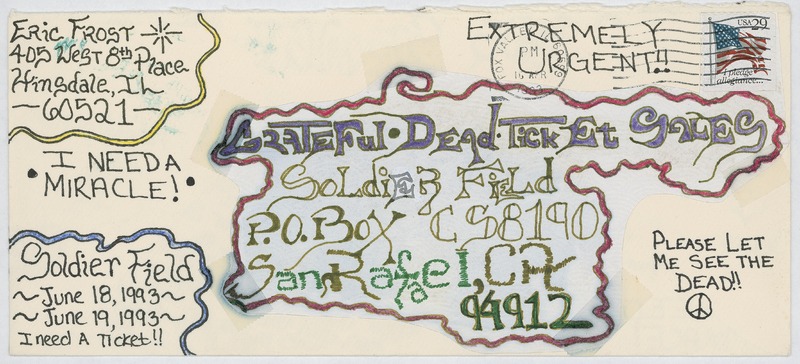 Eric Frost
405 West 8th Place
Hinsdale, IL
—60521—
EXTREMELY
URGENT!!
FOX VALLEY IL
PM
16 APR
USA 29
I pledge
allegiance...
• I NEED A
MIRACLE! •
GRATEFUL • DEAD • TICKET SALES
SOLDIER FIELD
P.O. BOX CS8190
San Rafael, CA
94912
Soldier Field
~June 18, 1993~
~June 19, 1993~
I need A Ticket!!
PLEASE LET
ME SEE THE
DEAD!!